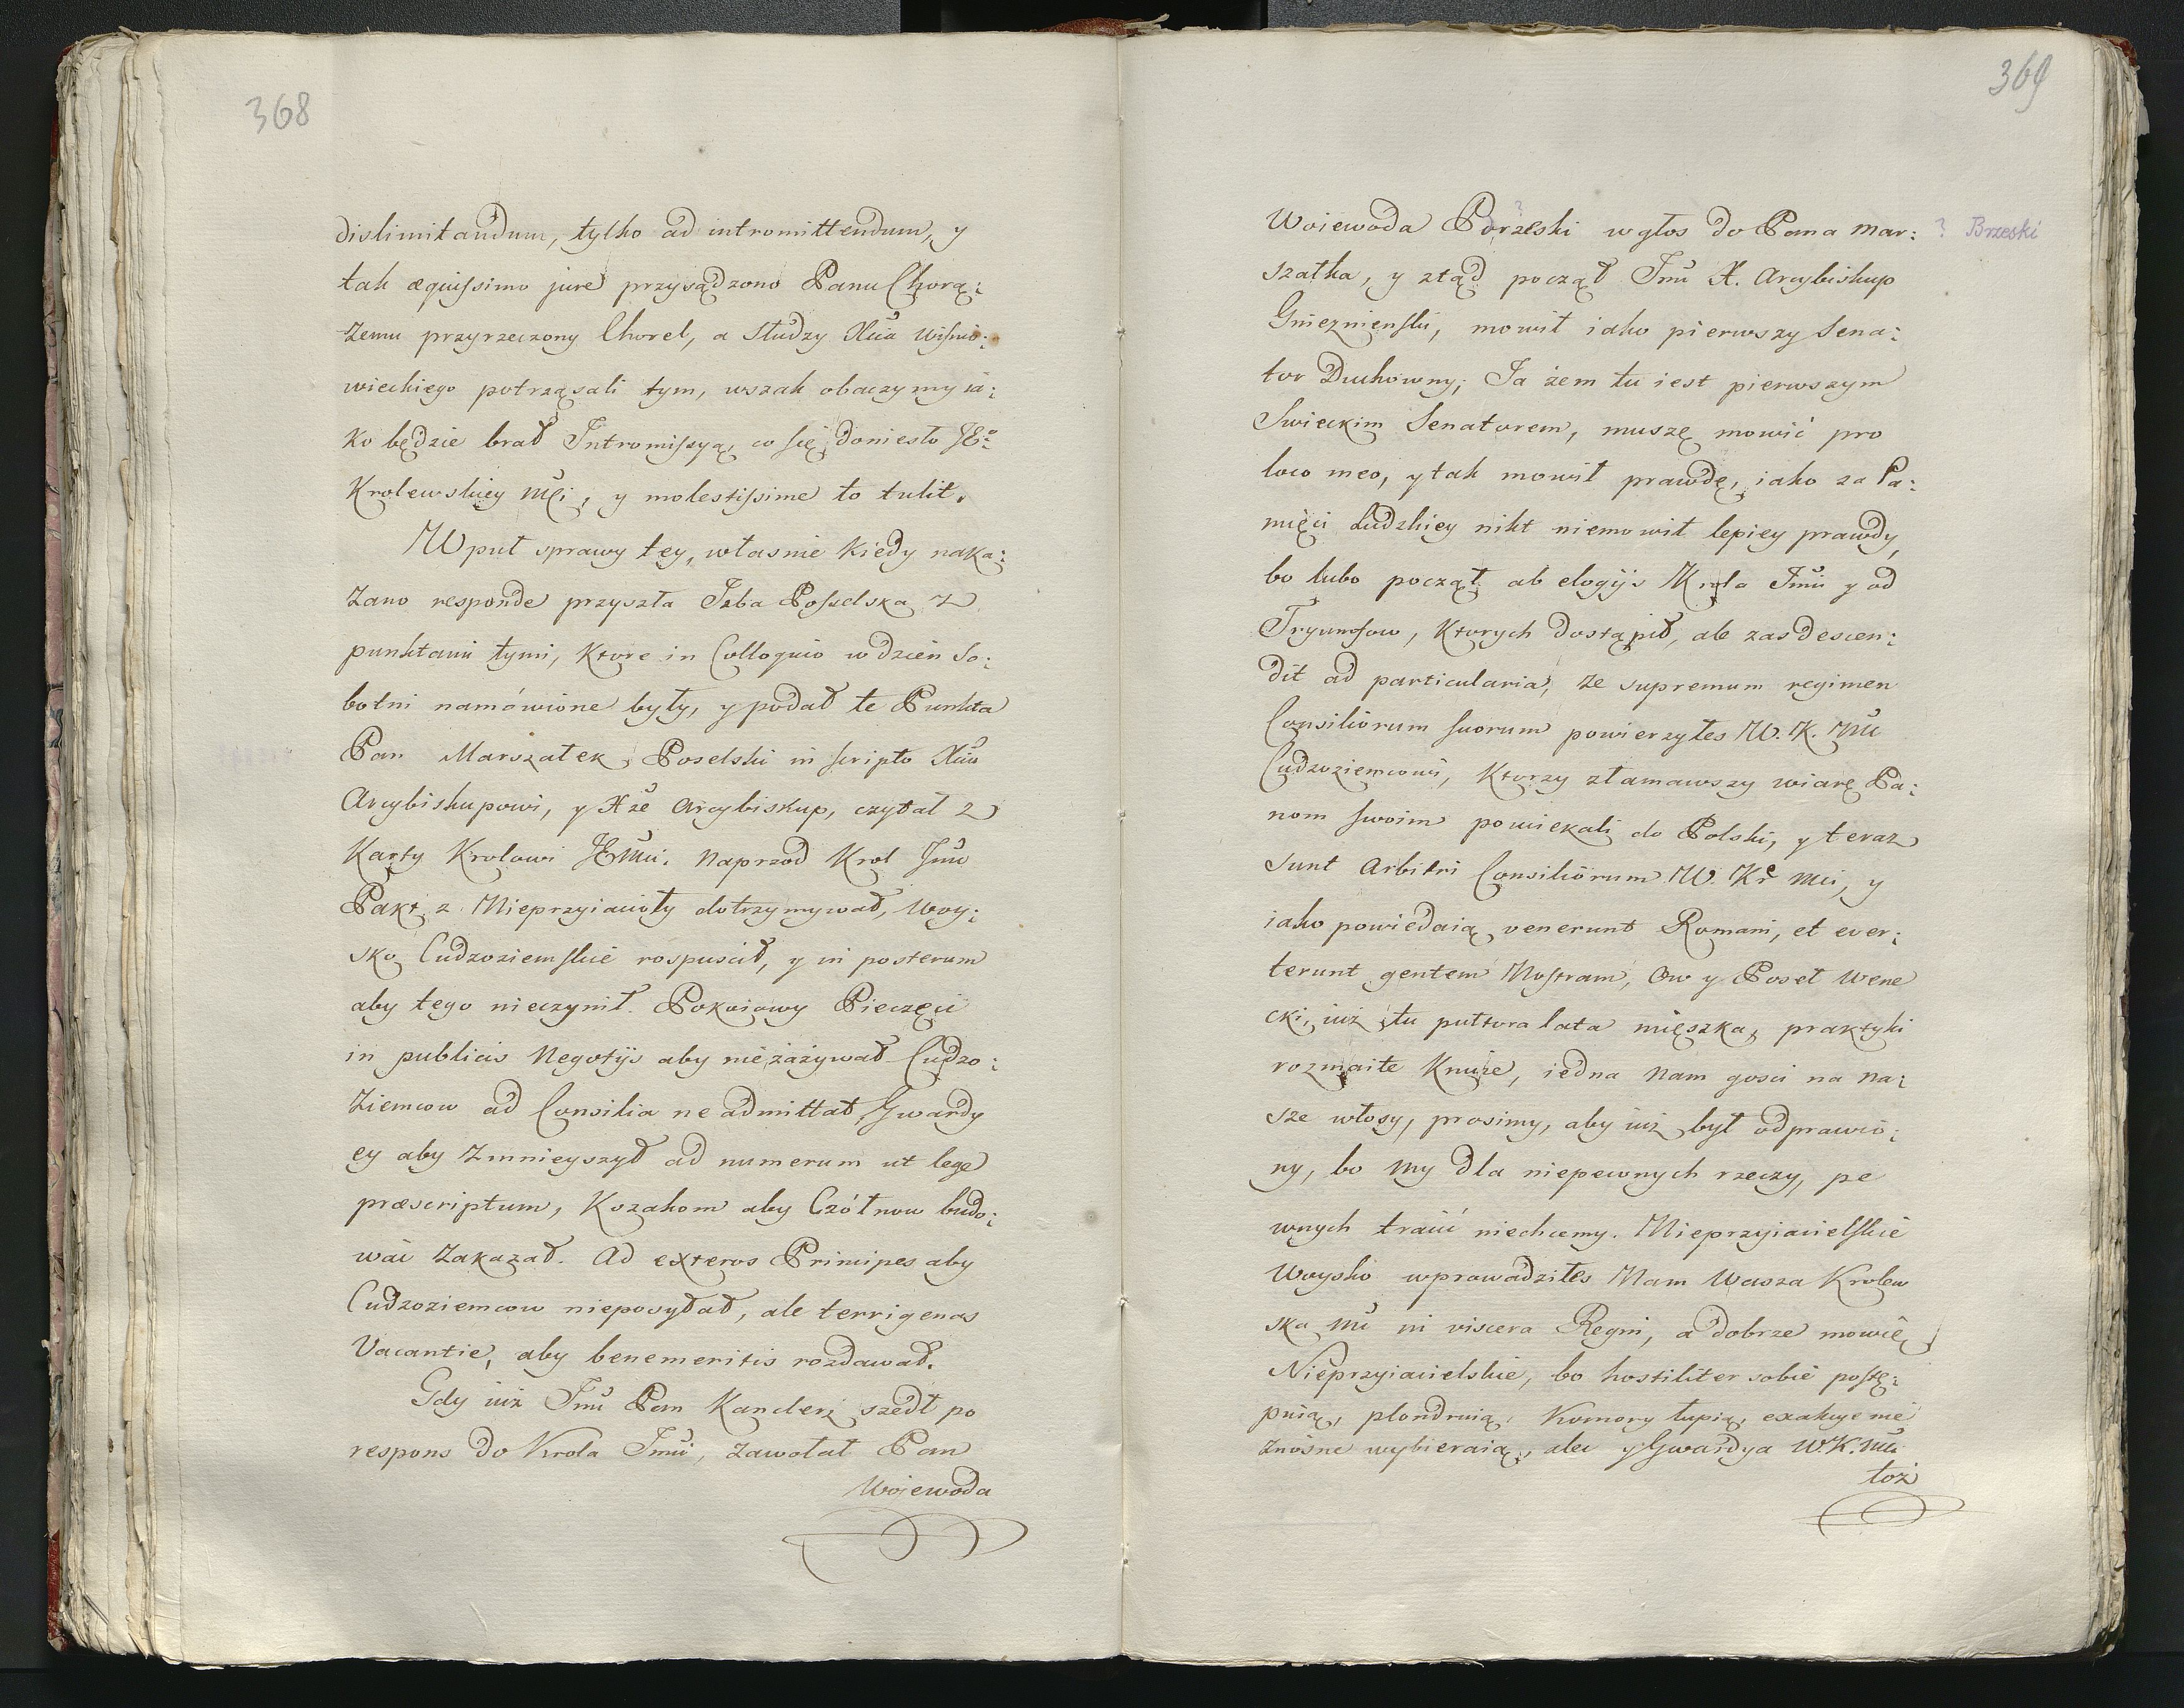 368
dislimitandum, tylko ad intromittendum, y
tak æquissimo jure przysądzono Panu Chorą:
żemu przyrzeczony Chorel, a Słudzy Xcia Wiśnio:
wieckiego potrząsali tym, wszak obaczymy ia:
ko będzie brał Intromissyą, co się doniesło JEº
Krolewskiey Mci, y molestissime to tulit.
W puł sprawy tey, własnie kiedy naka:
zano responde przyszła Izba Poselska z
punktami tymi, ktore in Colloquio w dzien So:
botni namówione były, y podał te Punkta
Pan Marszałek Poselski in scripto Xciu
Arcybiskupowi, y Xże Arcybiskup, czytał z
Karty Krolowi JEMci. Naprzod Krol Jmć
Pakt z Nieprzyiacioły dotrzymywał, Woy:
sko Cudzoziemskie rospuscił, y in posterum
aby tego nieczynił. Pokoiowy Pieczęci
in publicis Negotijs aby nie zażywał Cudzo:
Ziemcow ad Consilia ne admittat, Gwardy
ey aby Zmnieyszył ad numerum ut lege
præscriptum, Kozakom aby Czółnow budo:
wai Zakazał. Ad exteros Principes aby
Cudzoziemcow nieposyłał, ale terrigenas
Vacantie, aby benemeritis rozdawał.
Gdy iuż Jmć Pan Kanclerz szedł po
respons do Krola Jmći, zawołał Pan
Wojewoda
369
Woiewoda Porzeski w głos do Pana Mar: ? Brzeski
szałka, y ztąd począł Jmć X. Arcybiskup
Gnieznienski, mowił iako pierwszy Sena:
tor Duchowny; Ja żem tu iest pierwszym
Swieckim Senatorem, muszę mowić pro
loco meo, y tak mowił prawdę, iako za Pa:
mięci Ludzkiey nikt niemowił lepiey prawdy,
bo lubo począł ab elogijs Krola Jmći y od
Tryumfow, ktorych dostąpił, ale zas descen:
dit ad particularia, że supremum regimen
Consiliorum suorum powierzyłes W. K. Mći
Cudzoziemcowi, Ktorzy złamawszy wiarę Pa:
nom swoim pouciekali do Polski, y teraz
sunt Arbitri Consiliorum W. Kr Mci, y
iako powiedaią, venerunt Romani, et ever:
terunt gentem Nostram, Ow y Poseł Wene
cki, iuż tu pułtora lata mięszka, praktyki
rozmaite Knuie, iedna Nam gosci na Na:
sze włosy, prosimy, aby iuż był odprawio:
ny, bo My dla niepewnych rzeczy, pe
wnych tracić niechcemy. Nieprzyiacielskie
Woysko wprowadziłes Nam Wasza Krolew
ska Mć in viscera Regni, a dobrze mowię,
Nieprzyiacielskie, bo hostiliter sobie postę:
puią, plondruią, Komory łupią, exakcye nie
znosne wybieraią, alec y Gwardya W.K.Mci
toż